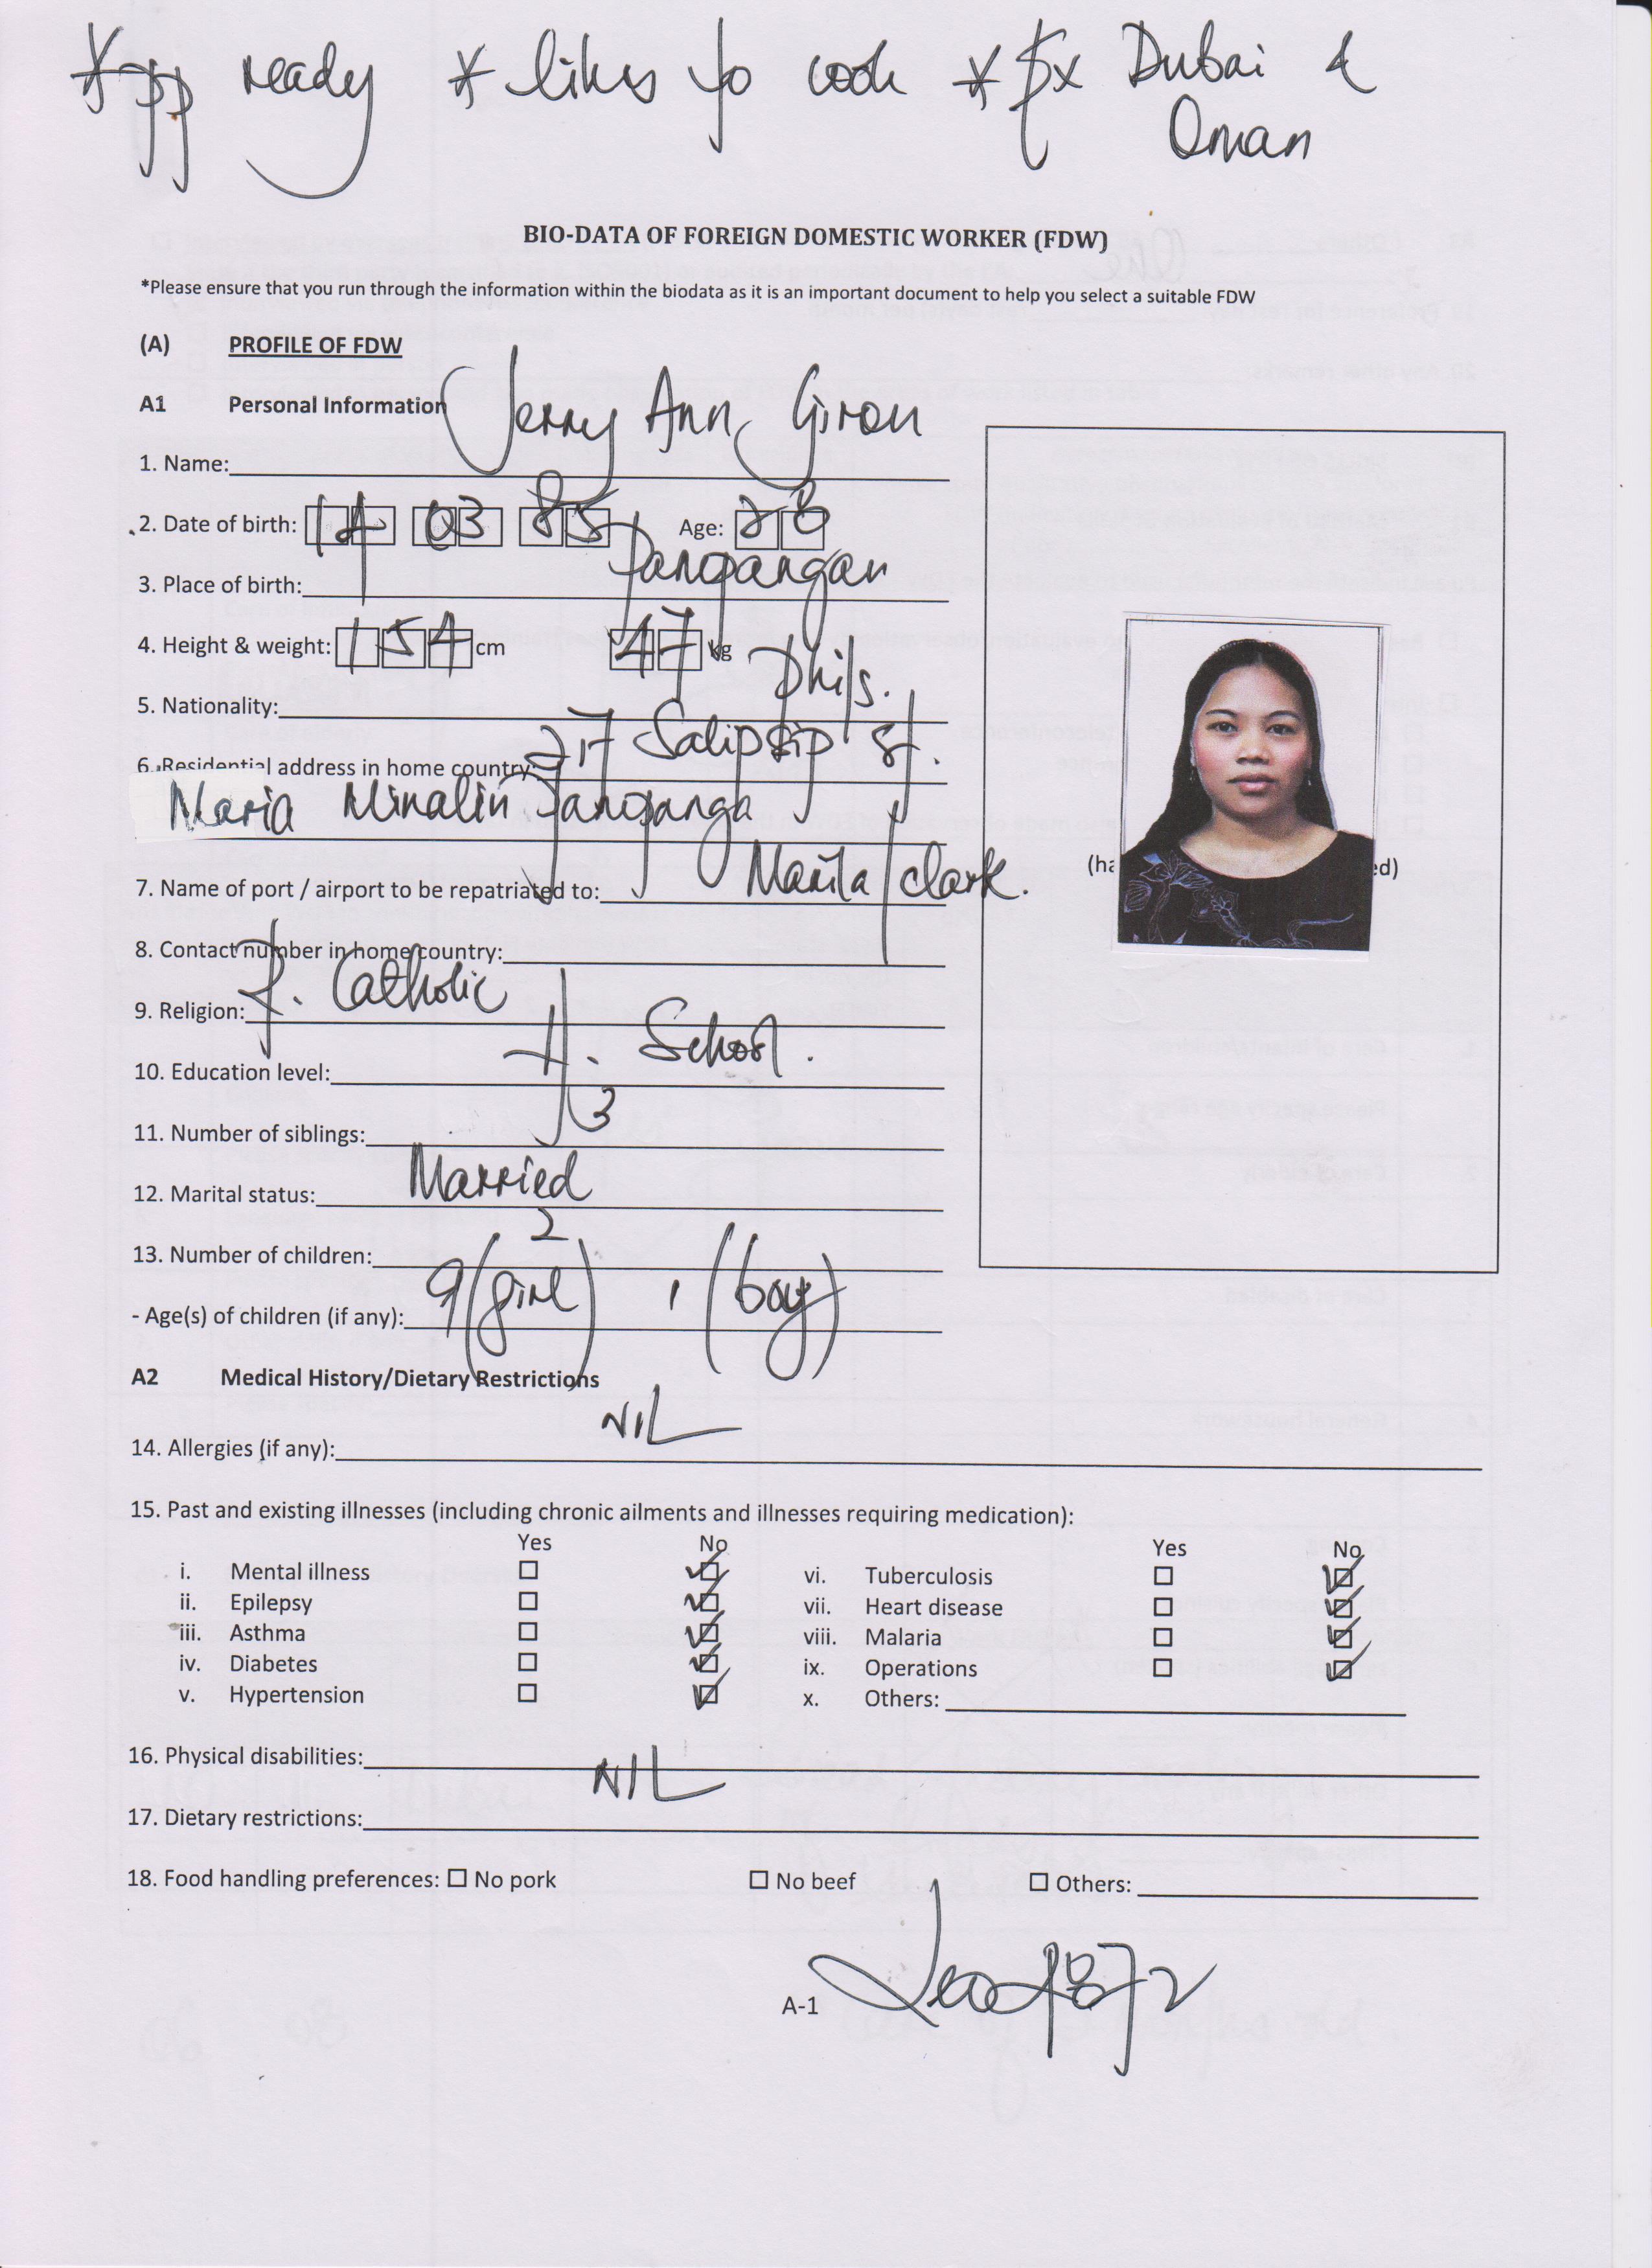 *pp ready *likes to cook *Ex Dubai &
Oman
BIO-DATA OF FOREIGN DOMESTIC WORKER (FDW)
*Please ensure that you run through the information within the biodata as it is an important document to help you select a suitable FDW
(A) PROFILE OF FDW
A1 Personal Information
1. Name: Jerry Ann Giron
2. Date of birth: 14 03 85 Age: 28
3. Place of birth:
4. Height & weight: 154 cm 47 kg
5. Nationality: Phils.
6. Residential address in home country: st.
Maria Minalin
7. Name of port / airport to be repatriated to: Manila/clark.
8. Contact number in home country:
9. Religion: R. Catholic
10. Education level: H. School.
11. Number of siblings: 3
12. Marital status: Married
13. Number of children: 2
- Age(s) of children (if any): 9(girl) 1 (boy)
A2 Medical History/Dietary Restrictions
14. Allergies (if any): NIL
15. Past and existing illnesses (including chronic ailments and illnesses requiring medication):
Yes No Yes No
i. Mental illness vi. Tuberculosis
ii. Epilepsy vii. Heart disease
iii. Asthma viii. Malaria
iv. Diabetes ix. Operations
v. Hypertension x. Others:
16. Physical disabilities:
NIL
17. Dietary restrictions:
18. Food handling preferences: No pork No beef Others:
A-1